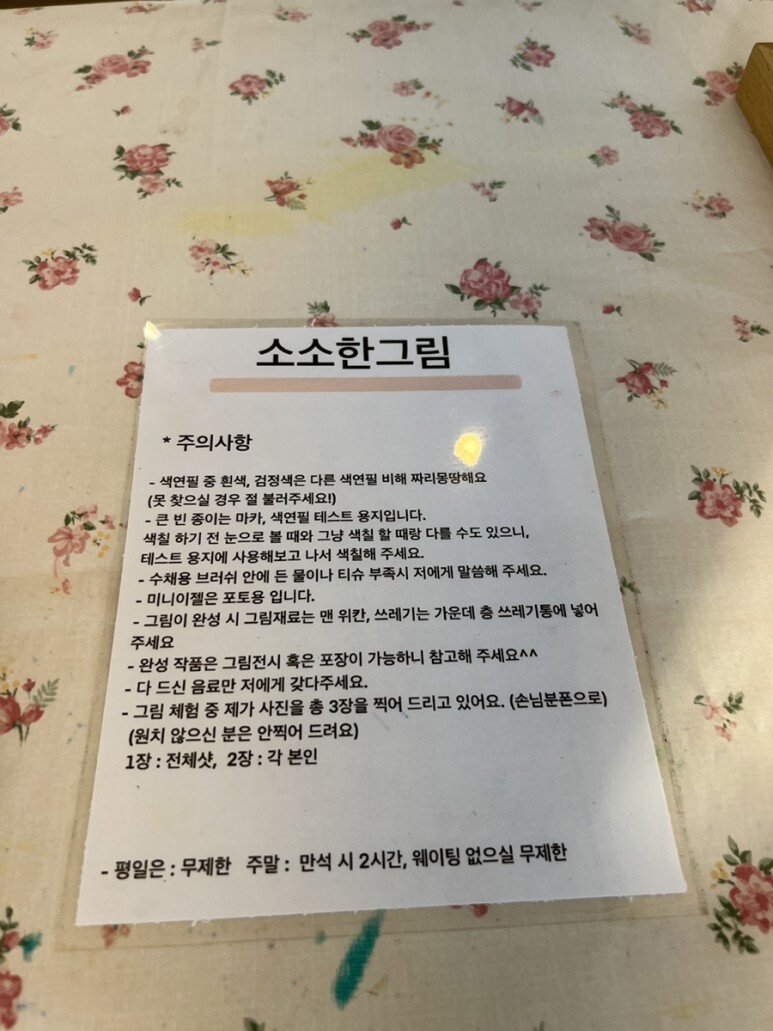 소소한그림
* 주의사항
- 색연필 중 흰색, 검정색은 다른 색연필 비해 짜리몽땅해요
(못 찾으실 경우 절 불러주세요!)
- 큰 빈 종이는 마카, 색연필 테스트 용지입니다.
색칠 하기 전 눈으로 볼 때와 그냥 색칠 할 때랑 다를 수도 있으니,
테스트 용지에 사용해보고 나서 색칠해 주세요.
- 수채용 브러쉬 안에 든 물이나 티슈 부족시 저에게 말씀해 주세요.
- 미니이젤은 포토용 입니다.
- 그림이 완성 시 그림재료는 맨 위칸, 쓰레기는 가운데 층 쓰레기통에 넣어
주세요
- 완성 작품은 그림전시 혹은 포장이 가능하니 참고해 주세요^^
- 다 드신 음료만 저에게 갖다주세요.
- 그림 체험 중 제가 사진을 총 3장을 찍어 드리고 있어요. (손님분폰으로)
(원치 않으신 분은 안찍어 드려요)
1장 : 전체샷, 2장 : 각 본인
- 평일은 : 무제한 주말 : 만석 시 2시간, 웨이팅 없으실 무제한